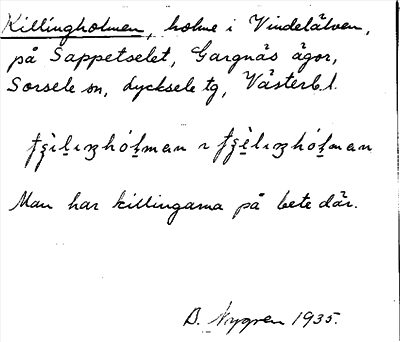 Killingholmen, holme i Vindelälven,
på Sappetselet, Gargnäs ägor,
Sorsele sn, Lycksele tg, Västerb. l.
Man har killingarna på bete där.
B. Nygren 1935.